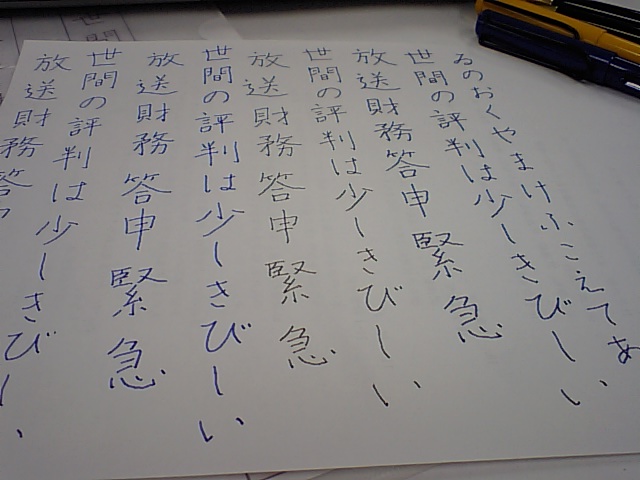 ゐのおくやまけふこえてあ
世間の評判は少しきびしい
放送財務答申緊急
世間の評判は少しきびしい
放送財務答申緊急
世間の評判は少しきびしい
放送財務答申緊急
世間の評判は少しきびしい
放送財務答